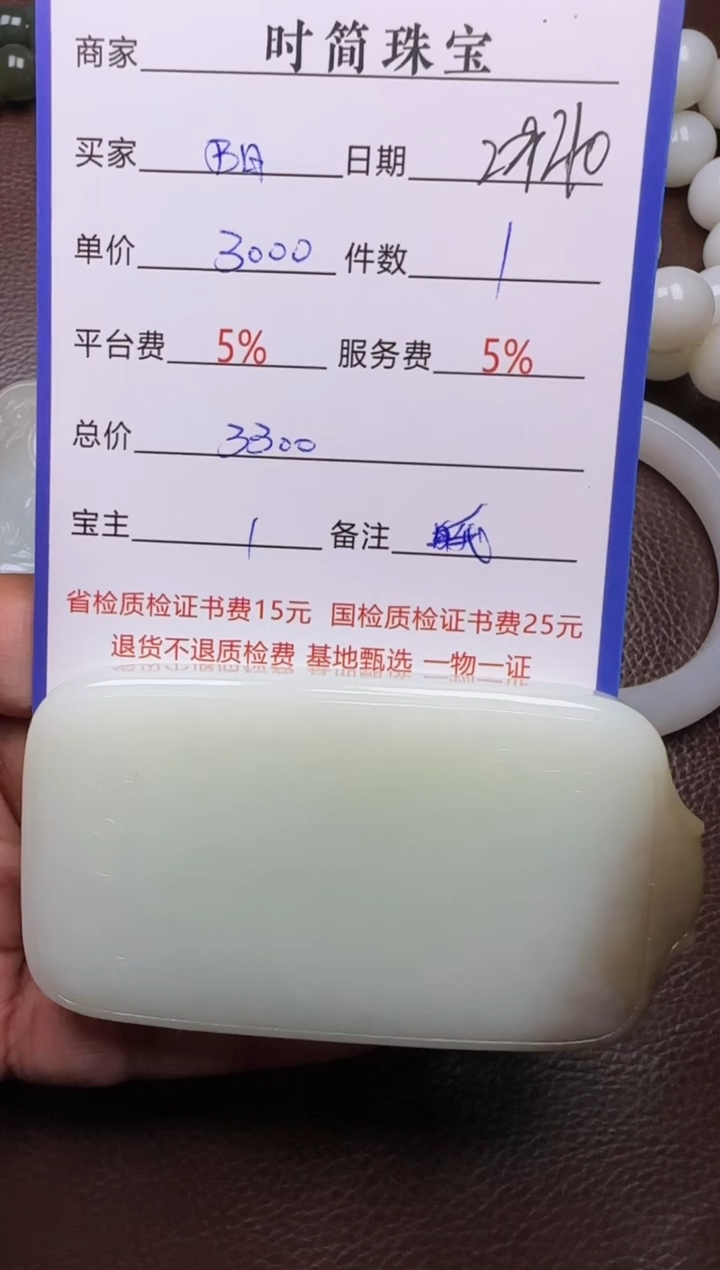 商家 时简珠宝
买家 日期
单价 3000 件数 1
平台费 5% 服务费 5%
总价 3300
宝主 1 备注
省检质检证书费15元 国检质检证书费25元
退货不退质检费 基地甄选 一物一证